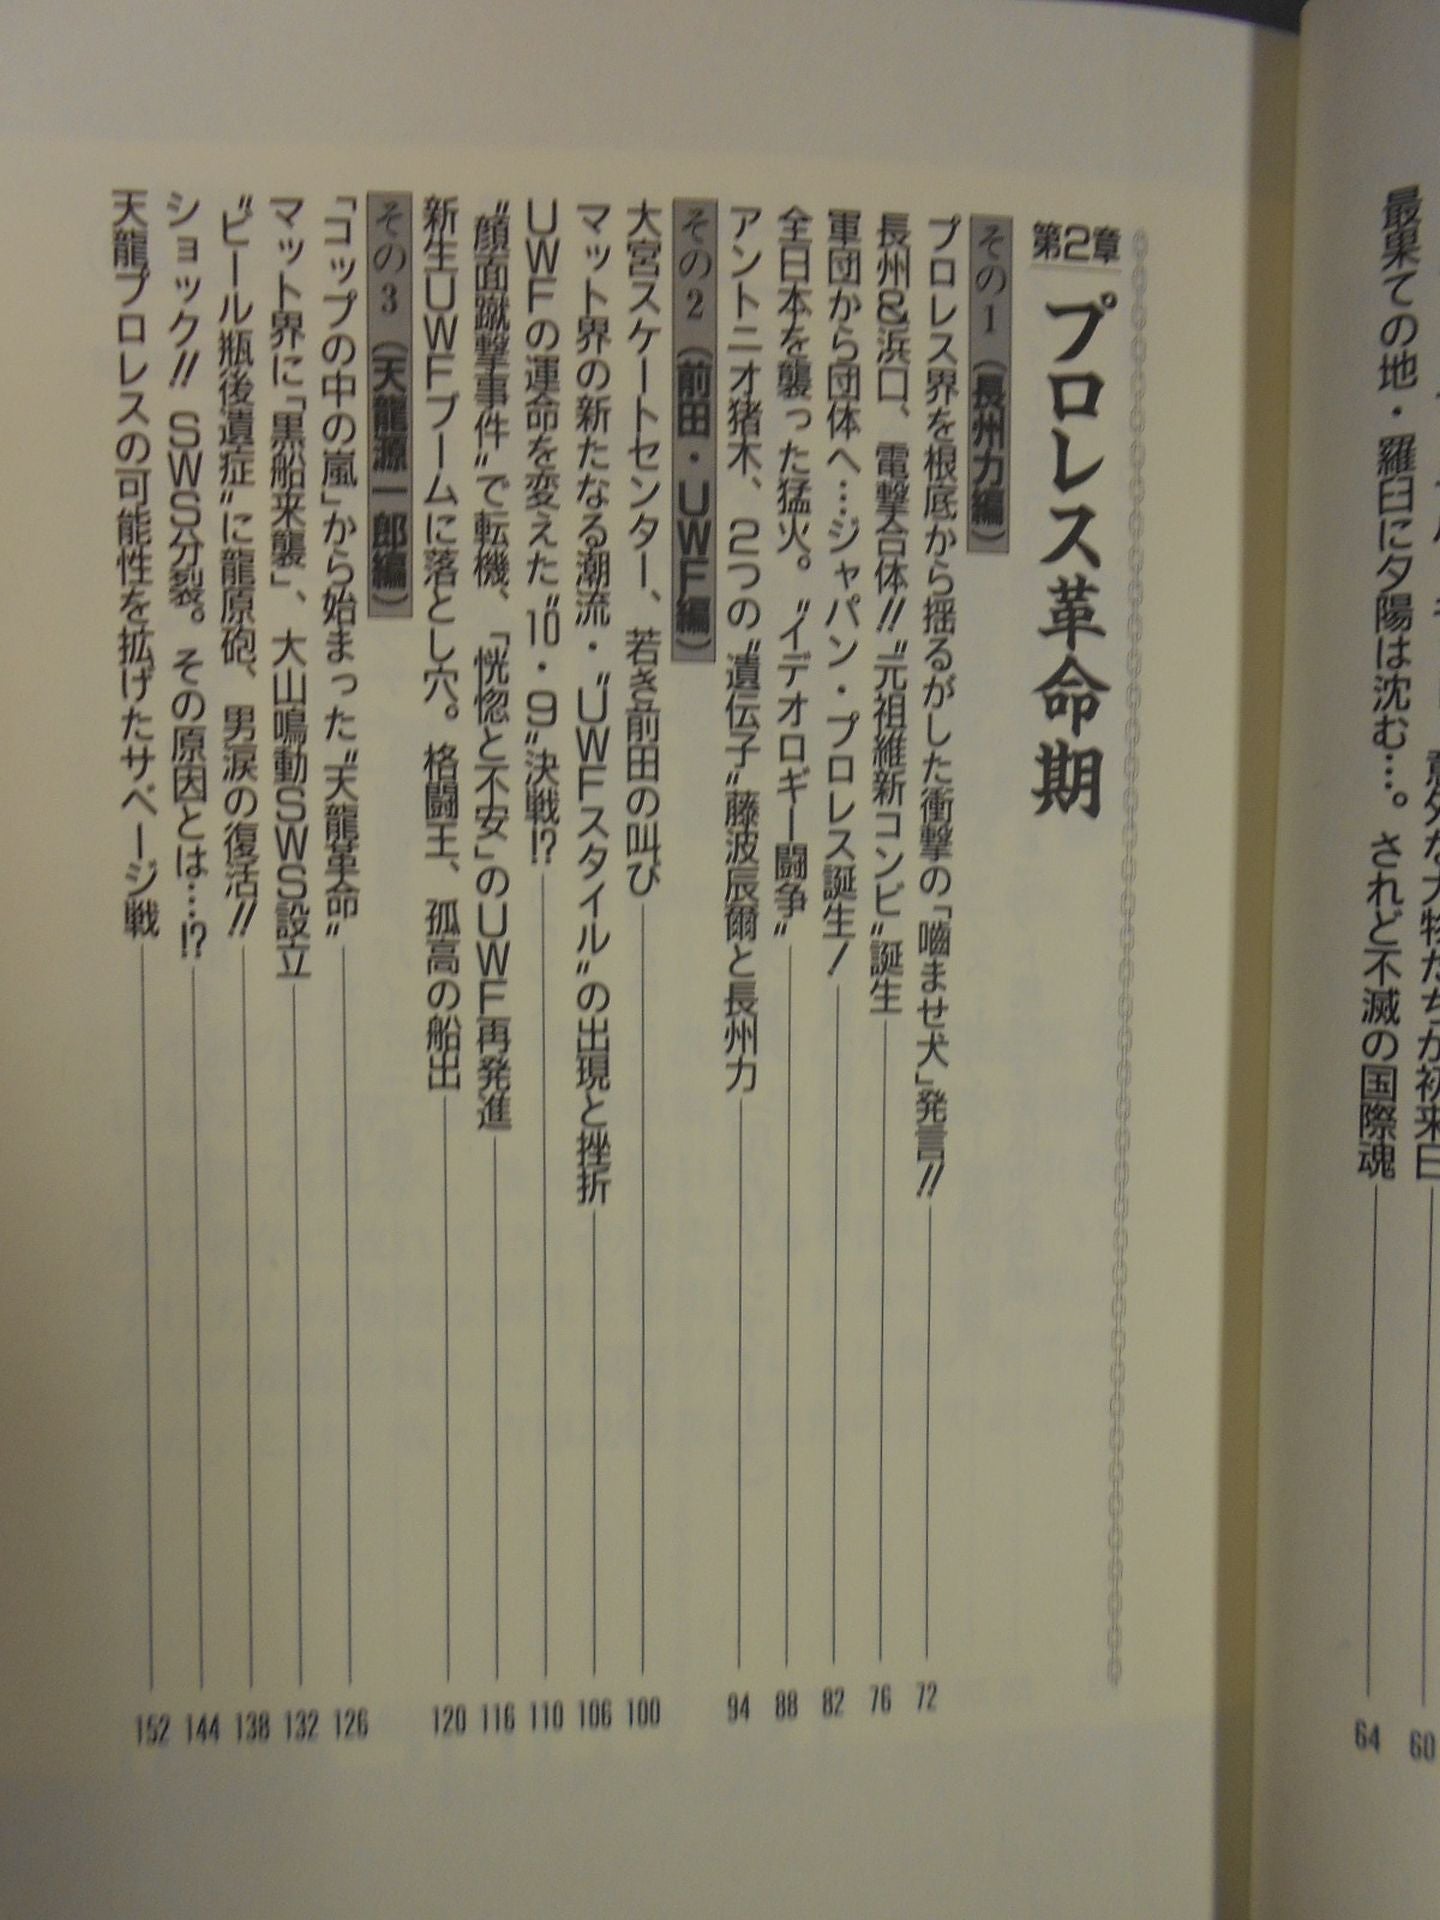 最果ての地・羅臼に夕陽は沈む…。されど不滅の国際魂 64
60
第2章 プロレス革命期
その1(長州力編)
プロレス界を根底から揺るがした衝撃の「嚙ませ犬」発言!! 72
長州&浜口、電撃合体!!〝元祖維新コンビ〟誕生 76
軍団から団体へ…ジャパン・プロレス誕生! 82
全日本を襲った猛火。〝イデオロギー闘争〟 88
アントニオ猪木、2つの〝遺伝子〟藤波辰爾と長州力 94
その2(前田・UWF編)
大宮スケートセンター、若き前田の叫び 100
マット界の新たなる潮流・〝UWFスタイル〟の出現と挫折 106
UWFの運命を変えた〝10・9〟決戦!? 110
〝顔面蹴撃事件〟で転機、「恍惚と不安」のUWF再発進 116
新生UWFブームに落とし穴。格闘王、孤高の船出 120
その3(天龍源一郎編)
「コップの中の嵐」から始まった〝天龍革命〟 126
マット界に「黒船来襲」、大山鳴動SWS設立 132
〝ビール瓶後遺症〟に龍原砲、男涙の復活!! 138
ショック!! SWS分裂。その原因とは…!? 144
天龍プロレスの可能性を拡げたサベージ戦 152